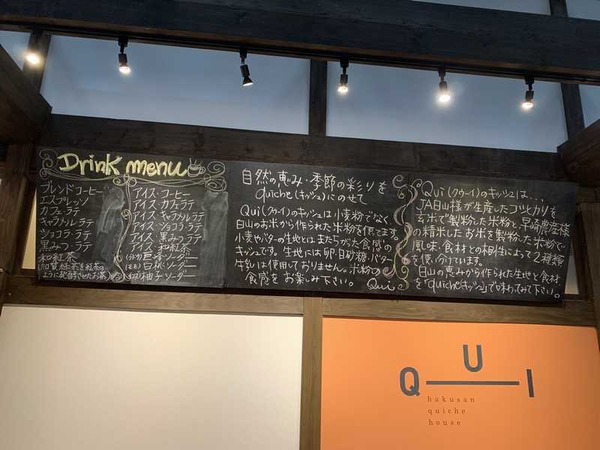 Drink menu
ブレンドコーヒー
エスプレッソ
カフェラテ
キャラメルラテ
ショコラ・ラテ
黒みつ・ラテ
和紅茶
アイス・コーヒー
アイス・カフェラテ
アイス・キャラメルラテ
アイス・ショコラ・ラテ
アイス・黒みつラテ
アイス・和紅茶
自然の恵み・季節の彩りを
quiche(キッシュ)にのせて
Qui(クゥーイ)のキッシュは小麦粉でなく
白山のお米から作られた米粉を使ってます。
小麦やバターの生地とはまたちがった食感の
キッシュです。生地には卵・白砂糖・バター
牛乳は使用しておりません。米粉の
食感をお楽しみ下さい。 Qui
Qui(クゥーイ)のキッシュは...
JA白山様が生産したコシヒカリを
玄米で製粉した米粉と
の精米したお米を製粉した米粉で
風味、食材との相性によって2種類
を使い分けています。
白山の恵みから作られた生地と食材
を"quiche(キッシュ)"で味わってみて下さい。
QUI
hakusan
quiche
house